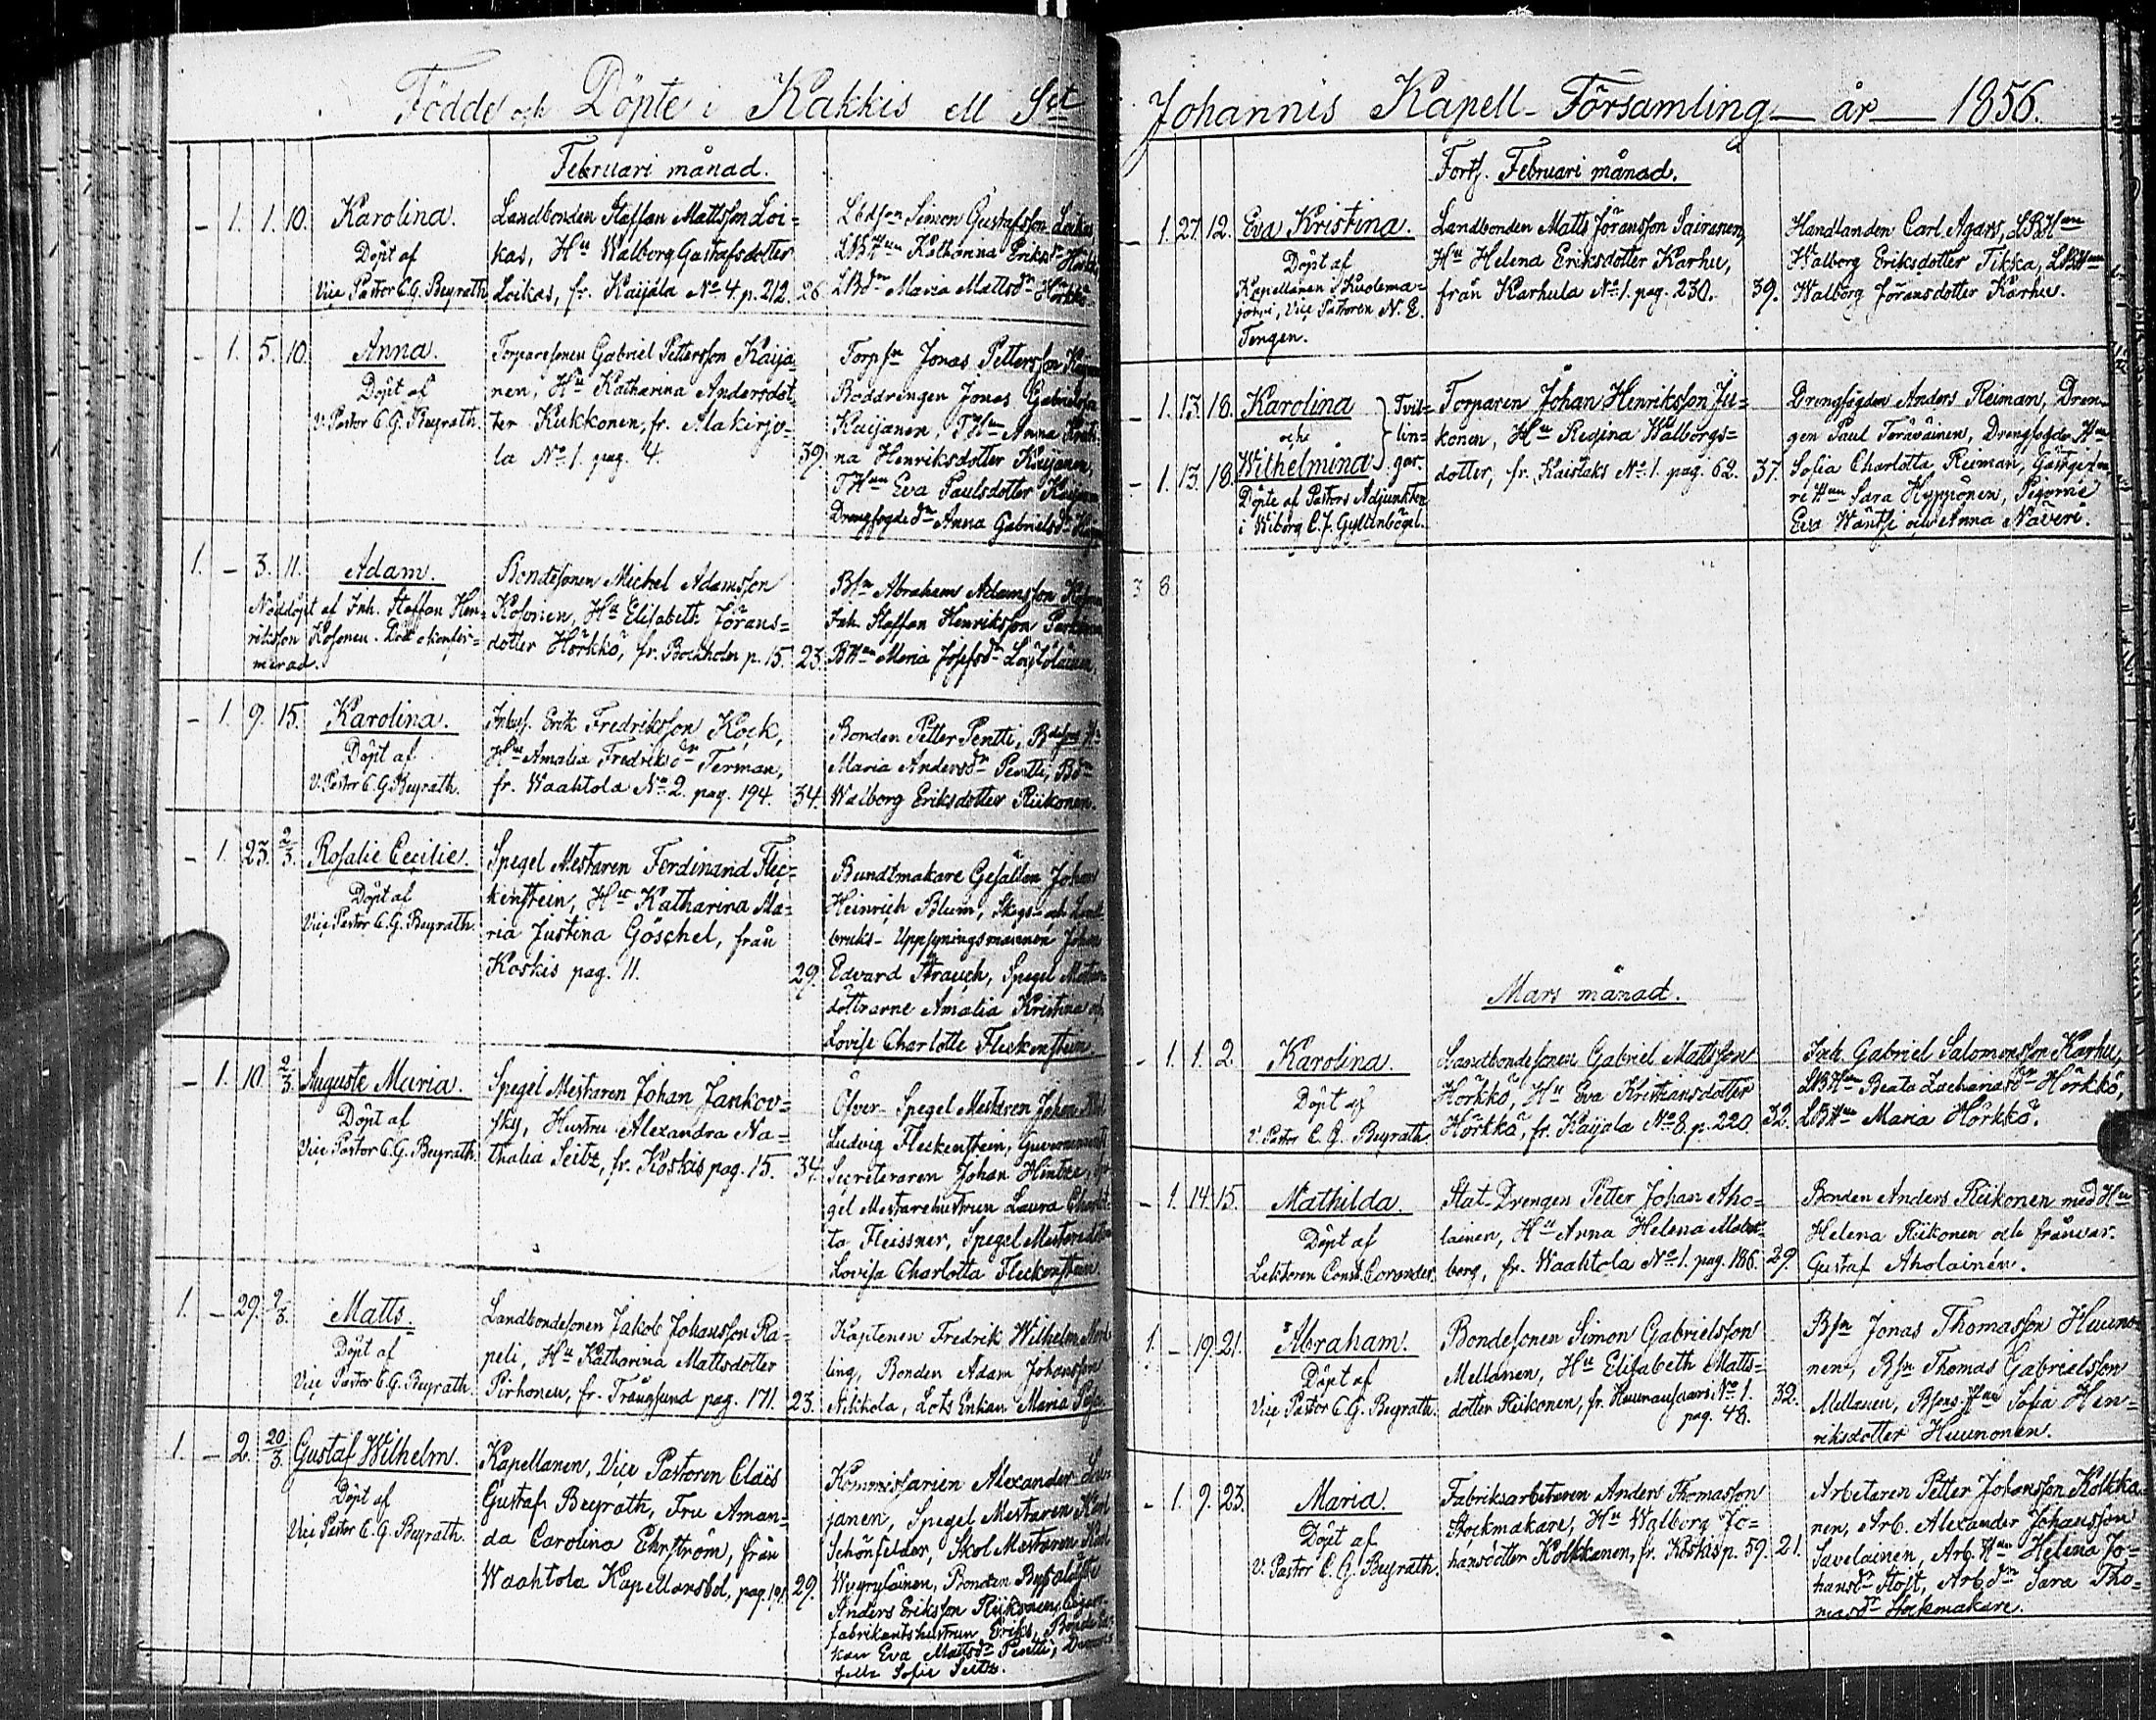 Födde och Döpte i Kakkis ell Sct
Februari månad.
- 1. 1. 10. Karolina. Landbonden Staffan Mattsson Loi=
Döpt af kas, Hu Walborg Gustafsdotter
Vice Pastor C. G. Beyrath Loikas, fr. Kaijala No 4. p. 212. 26
Lbdsn Simon Gustafsson Loikas
LBHun Katharina Eriksdr Hörkkö
LBdn Maria Mattsdr Hörkkö
- 1. 5. 10. Anna. Torparesonen Gabriel Pettersson Kaija
Döpt af nen, Hu Katharina Andersdot
V. Pastor C. G. Beyrath. ter Kukkonen, fr. Alakirjo-
la No 1. pag. 4. 39.
Torpsn Jonas Pettersson
Boddrengen Jonas Gabrielsson
Kaijanen, THun Anna
na Henriksdotter Kaijanen,
THun Eva Paulsdotter
Drengfogdedn Anna Gabrielsdr
1. - 3. 11. Adam. Bondesonen Michel Adamsson
Nöddöpt af Inh. Staffan Hen- Kosonen, Hu Elisabeth Jörans=
riksson Kosonen. dotter Hörkkö, fr. Bockholm p. 15. 23.
merad.
Bsn Abraham Adamsson
Inh. Staffan Henriksson
BHun Maria Josefsdr
- 1. 9. 15. Karolina. Inhys. Erik Fredriksson Kock,
Döpt af Hu Amalia Fredriksdr Terman,
V. Pastor C. G. Beyrath. fr. Waahtola No 2. pag. 194. 34.
Bonden Petter Pentti,
Maria Andersdr Pentti, Bdn
Walborg Eriksdotter Riikonen.
- 1. 23. 2/3. Rosalie Cecilie. Spegel Mestaren Ferdinand Flec-
Döpt af kenstein, Hu Katharina Ma-
Vice Pastor C. G. Beyrath. ria Justina Göschel, från
Koskis pag. 11. 29.
Bundtmakare Gesällen Johan
Heinrich Blum, Skogs- och Land
bruks-Uppsyningsmannen Johan
Edvard Strauch, Spegel Mestare
döttrarne Amalia Kristina och
Lovise Charlotte Fleckenstein
- 1. 10. 2/3. Auguste Maria. Spegel Mestaren Johan Jankov=
Döpt af sky, Hustru Alexandra Na=
Vice Pastor C. G. Beyrath. thalia Seitz, fr. Koskis pag. 15. 34.
Öfver-Spegel Mestaren Johan
Ludvig Fleckenstein,
Secreteraren Johan Hintze,
gel Mestarehustrun Laura
ta Fleissner, Spegel
Lovisa Charlotta Fleckenstein
1. - 29. 2/3. Matts. Landbondesonen Jakob Johansson Ra=
Döpt af peli, Hu Katharina Mattsdotter
Vice Pastor C. G. Beyrath. Pirhonen, fr. Trångsund pag. 171. 23.
Kaptenen Fredrik Wilhelm
ling, Bonden Adam Johansson
Nikkola, Lots Enkan Maria
1. - 2. 20/3 Gustaf Wilhelm. Kapellanen, Vice Pastoren Claës
Döpt af Gustaf Beyrath, Fru Aman=
Vice Pastor C. G. Beyrath. da Carolina Ehrström, från
Waahtola Kapellansbol, pag. 191. 29.
Kommissarien Alexander
janen, Spegel Mestaren Karl
Schönfelder, Skol Mestaren
Wägryläinen, Bonden
Anders Eriksson Riikonen,
fabrikantshustrun
Eva Mattsdr Pentti,
Sofie Seitz.
Johannis Kapell-Församling år 1856.
Forts. Februari månad.
- 1. 27. 12. Eva Kristina. Landbonden Matts Jöransson Sairanen,
Döpt af Hu Helena Eriksdotter Karhu,
Kapellanen i Kuolema= från Karhula No 1. pag. 230. 39.
järvi, Vice Pastoren N. E.
Tengen.
Handlanden Carl Agars, LBHun
Walborg Eriksdotter Tikka, LBHun
Walborg Jöransdotter Karhu.
- 1. 13. 18. Karolina Tvil= Torparen Johan Henriksson Ju=
och lin= konen, Hu Regina Walborgs=
- 1. 13. 18. Wilhelmina gar. dotter, fr. Kaislaks No 1. pag. 62. 37.
Döpte af Pastors Adjunkten
i Wiborg C. J. Gyllenbögel.
Drengfogden Anders Reiman, Dren-
gen Paul Toräväinen, Drengfogde Hun
Sofia Charlotta Reiman,
re Hun Sara Hyppönen, Pigorne
Eva Wäntsi och Anna Näveri.
3 8
Mars månad.
- 1. 1. 2. Karolina. Landbondesonen Gabriel Mattsson
Döpt af Hörkkö, Hu Eva Kristiansdotter
V. Pastor C. G. Beyrath. Hörkkö, fr. Kaijala No 8. p. 220. 32.
Inh. Gabriel Salomonsson Karhu,
LBHun Beata Zachariasdr Hörkkö,
LBHun Maria Hörkkö.
- 1. 14. 15. Mathilda. Stat-Drengen Petter Johan Aho=
Döpt af lainen, Hu Anna Helena
Lektoren Const. Corander. berg, fr. Waahtola No 1. pag. 186. 29.
Bonden Anders Riikonen med Hu
Helena Riikonen och frånvar.
Gustaf Aholainen.
1. - 19. 21. Abraham. Bondesonen Simon Gabrielsson
Döpt af Mellanen, Hu Elisabeth Matts=
Vice Pastor C. G. Beyrath. dotter Riikonen, fr. Huunonsaari No 1. 32.
pag. 48.
Bsn Jonas Thomasson Huuno
nen, Bsn Thomas Gabrielsson
Mellanen, Bsons Hun Sofia Hen=
riksdotter Huunonen.
- 1. 9. 23. Maria. Fabriksarbetaren Anders Thomasson
Döpt af Stockmakare, Hu Walborg Jo=
V. Pastor C. G. Beyrath. hansdotter Kolkkanen, fr. Koskis p. 59. 21.
Arbetaren Petter Johansson Kolkka-
nen, Arb. Alexander Johansson
Savelainen, Arb. Hun Helena Jo=
hansdr Tost, Arb. dn Sara Tho=
masdr Stockmakare.